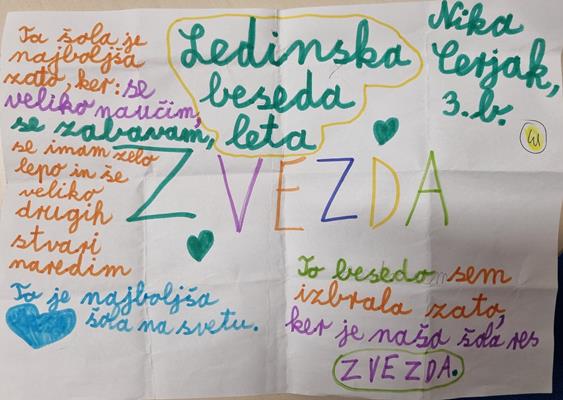 Ledinska
beseda
leta
Nika
Cerjak,
3.b.
Ta šola je
najboljša
zato, ker: se
veliko naučim,
se zabavam,
se imam zelo
lepo in še
veliko
drugih
stvari
naredim
ZVEZDA
To je najboljša
šola na svetu.
To besedo sem
izbrala zato,
ker je naša šola res
ZVEZDA.